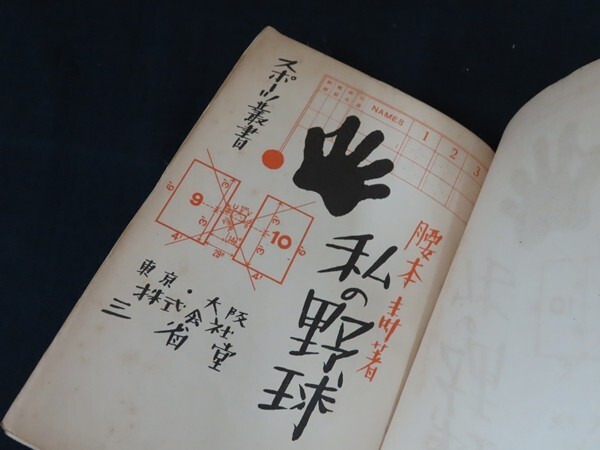 スポーツ叢書
NAMES 1 2 3
腰本寿著
私の野球
9
10
東京・大阪
株式会社
三省堂